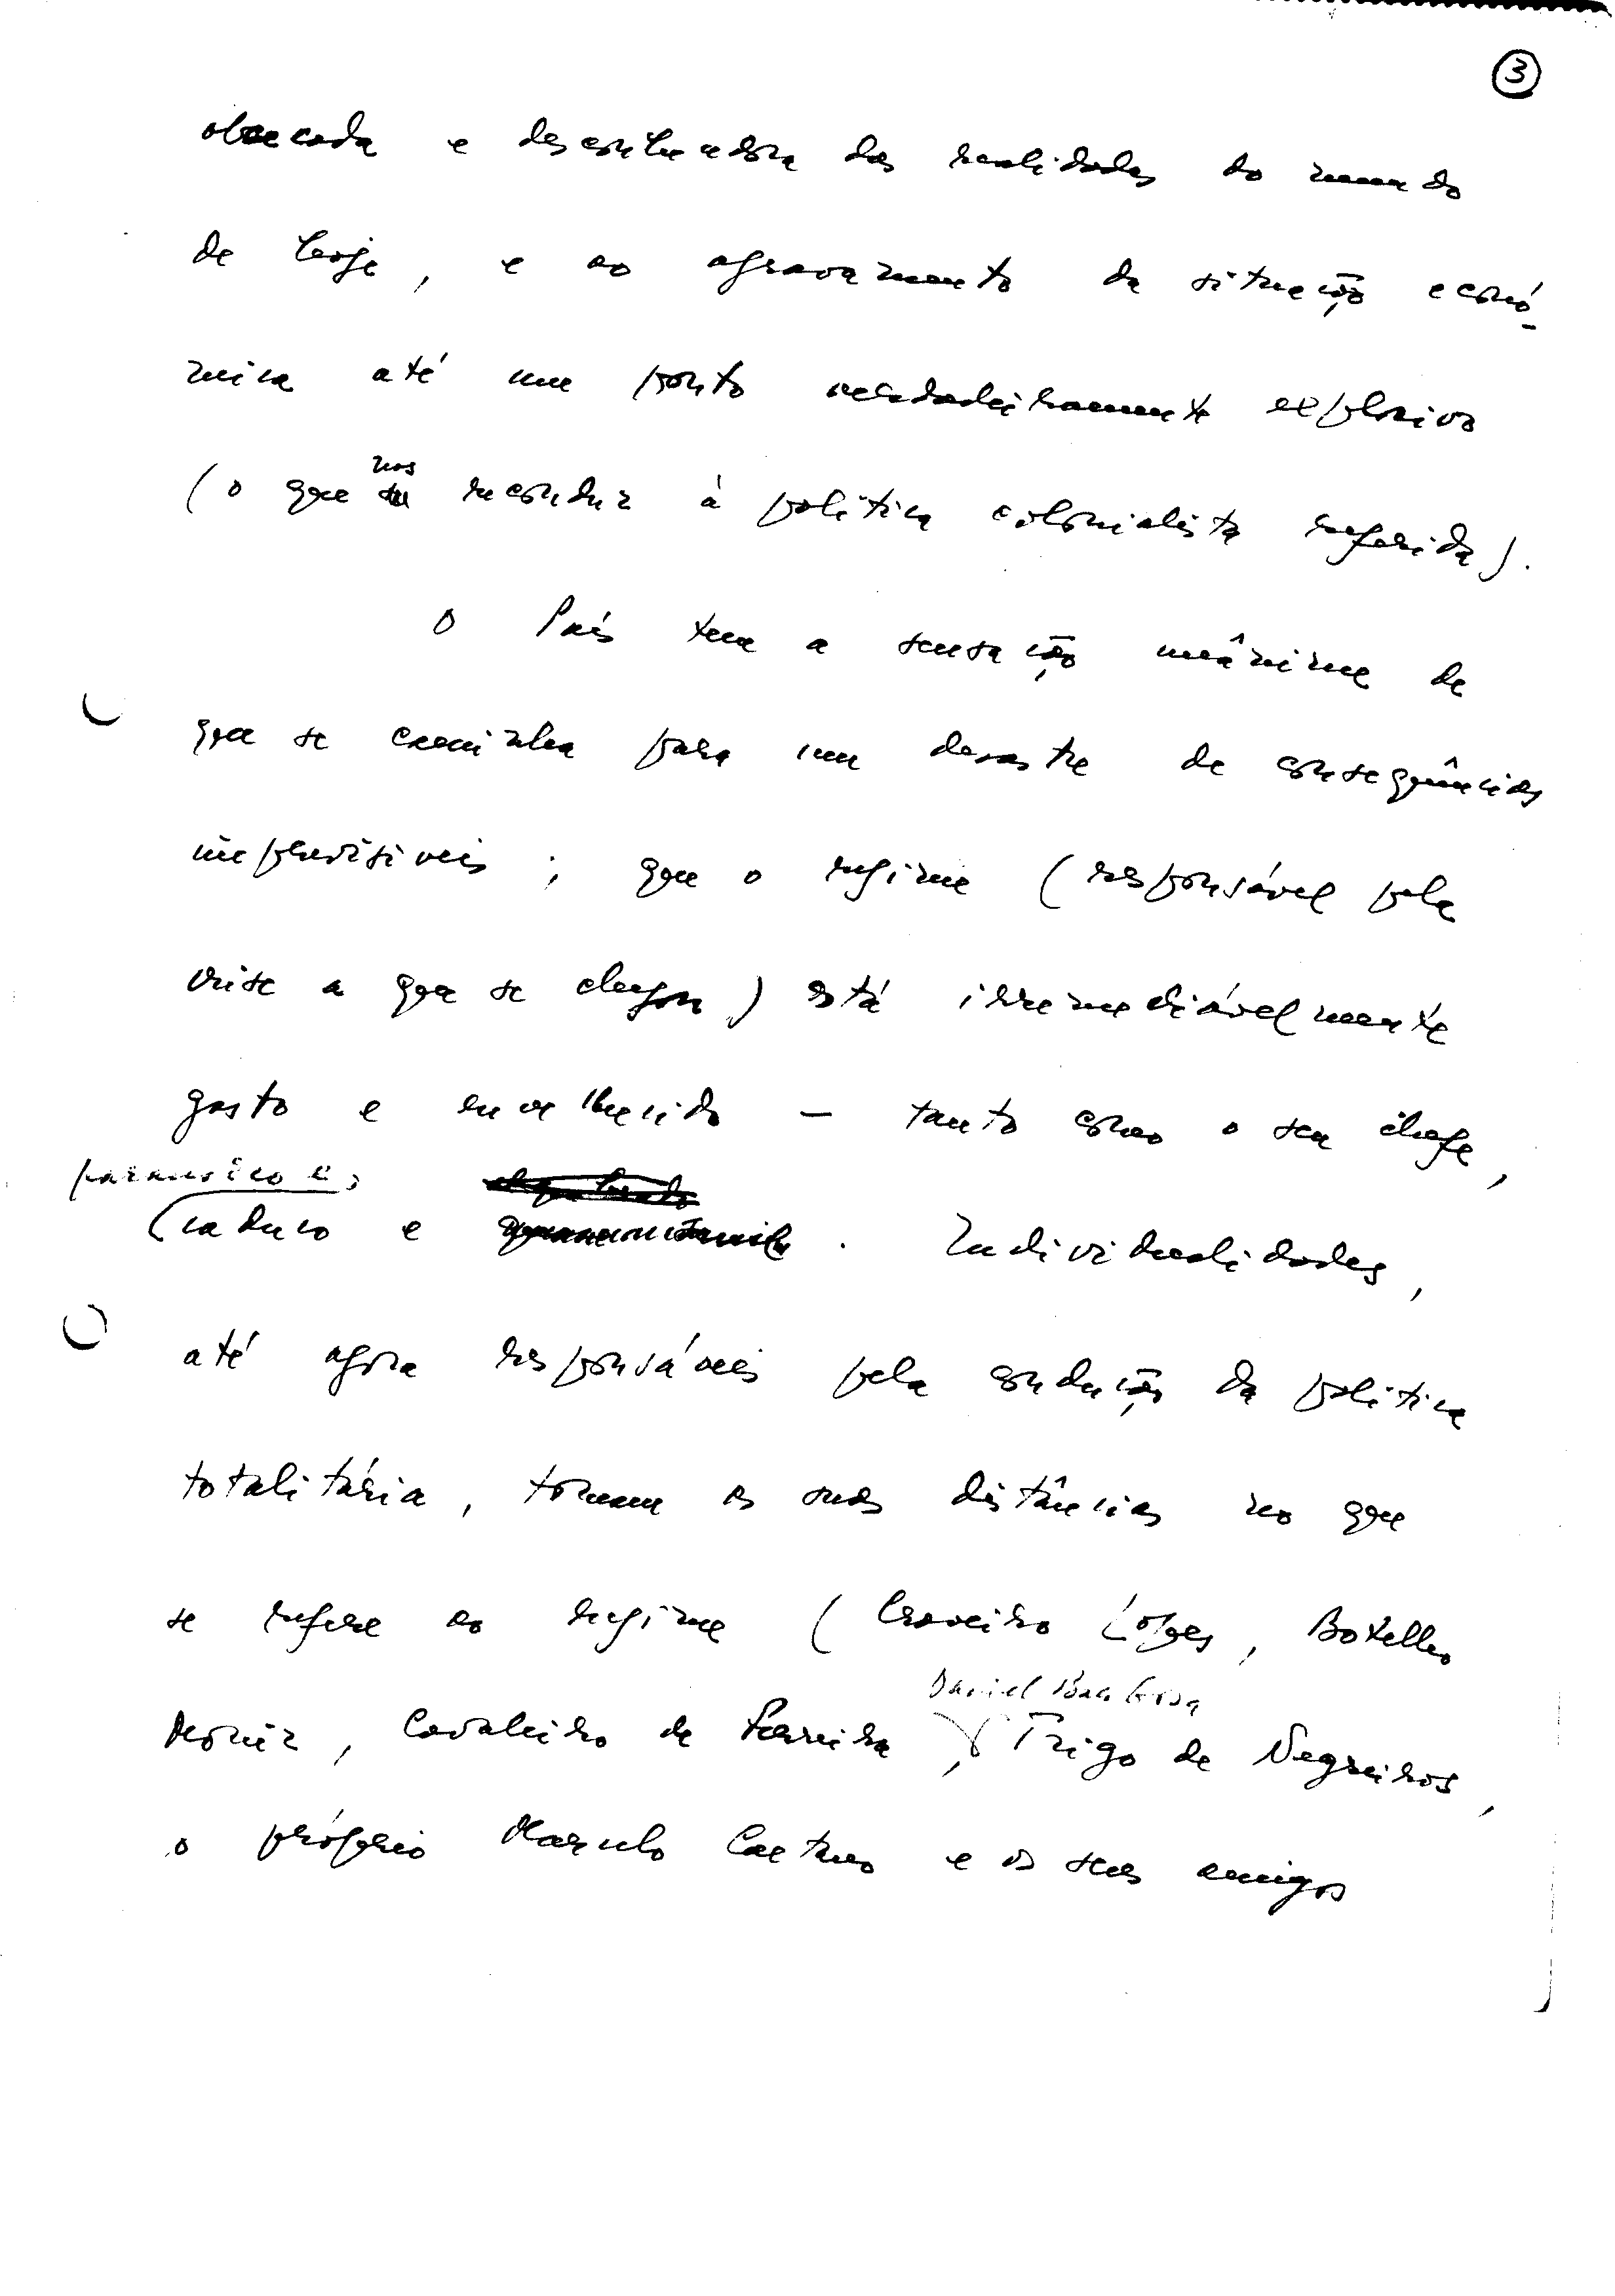 3
obcecada e desconhecedora das realidades do mundo
de hoje, e ao agravamento da situação econó-
mica até um ponto verdadeiramente explosivo
nos
(o que reconduz à política colonialista referida).
O País tem a sensação unânime de
que se caminha para um desastre de consequências
imprevisíveis; que o regime (responsável pela
crise a que se chegou) está irremediávelmente
gasto e envelhecido — tanto como o seu chefe,
paranóico e,
caduco e . Individualidades,
até agora responsáveis pela condução da política
totalitária, tomam as suas distâncias no que
se refere ao regime (Craveiro Lopes, Botelho
Daniel Barbosa
Moniz, Cavaleiro de Ferreira, Trigo de Negreiros,
o próprio Marcelo Caetano e os seus amigos